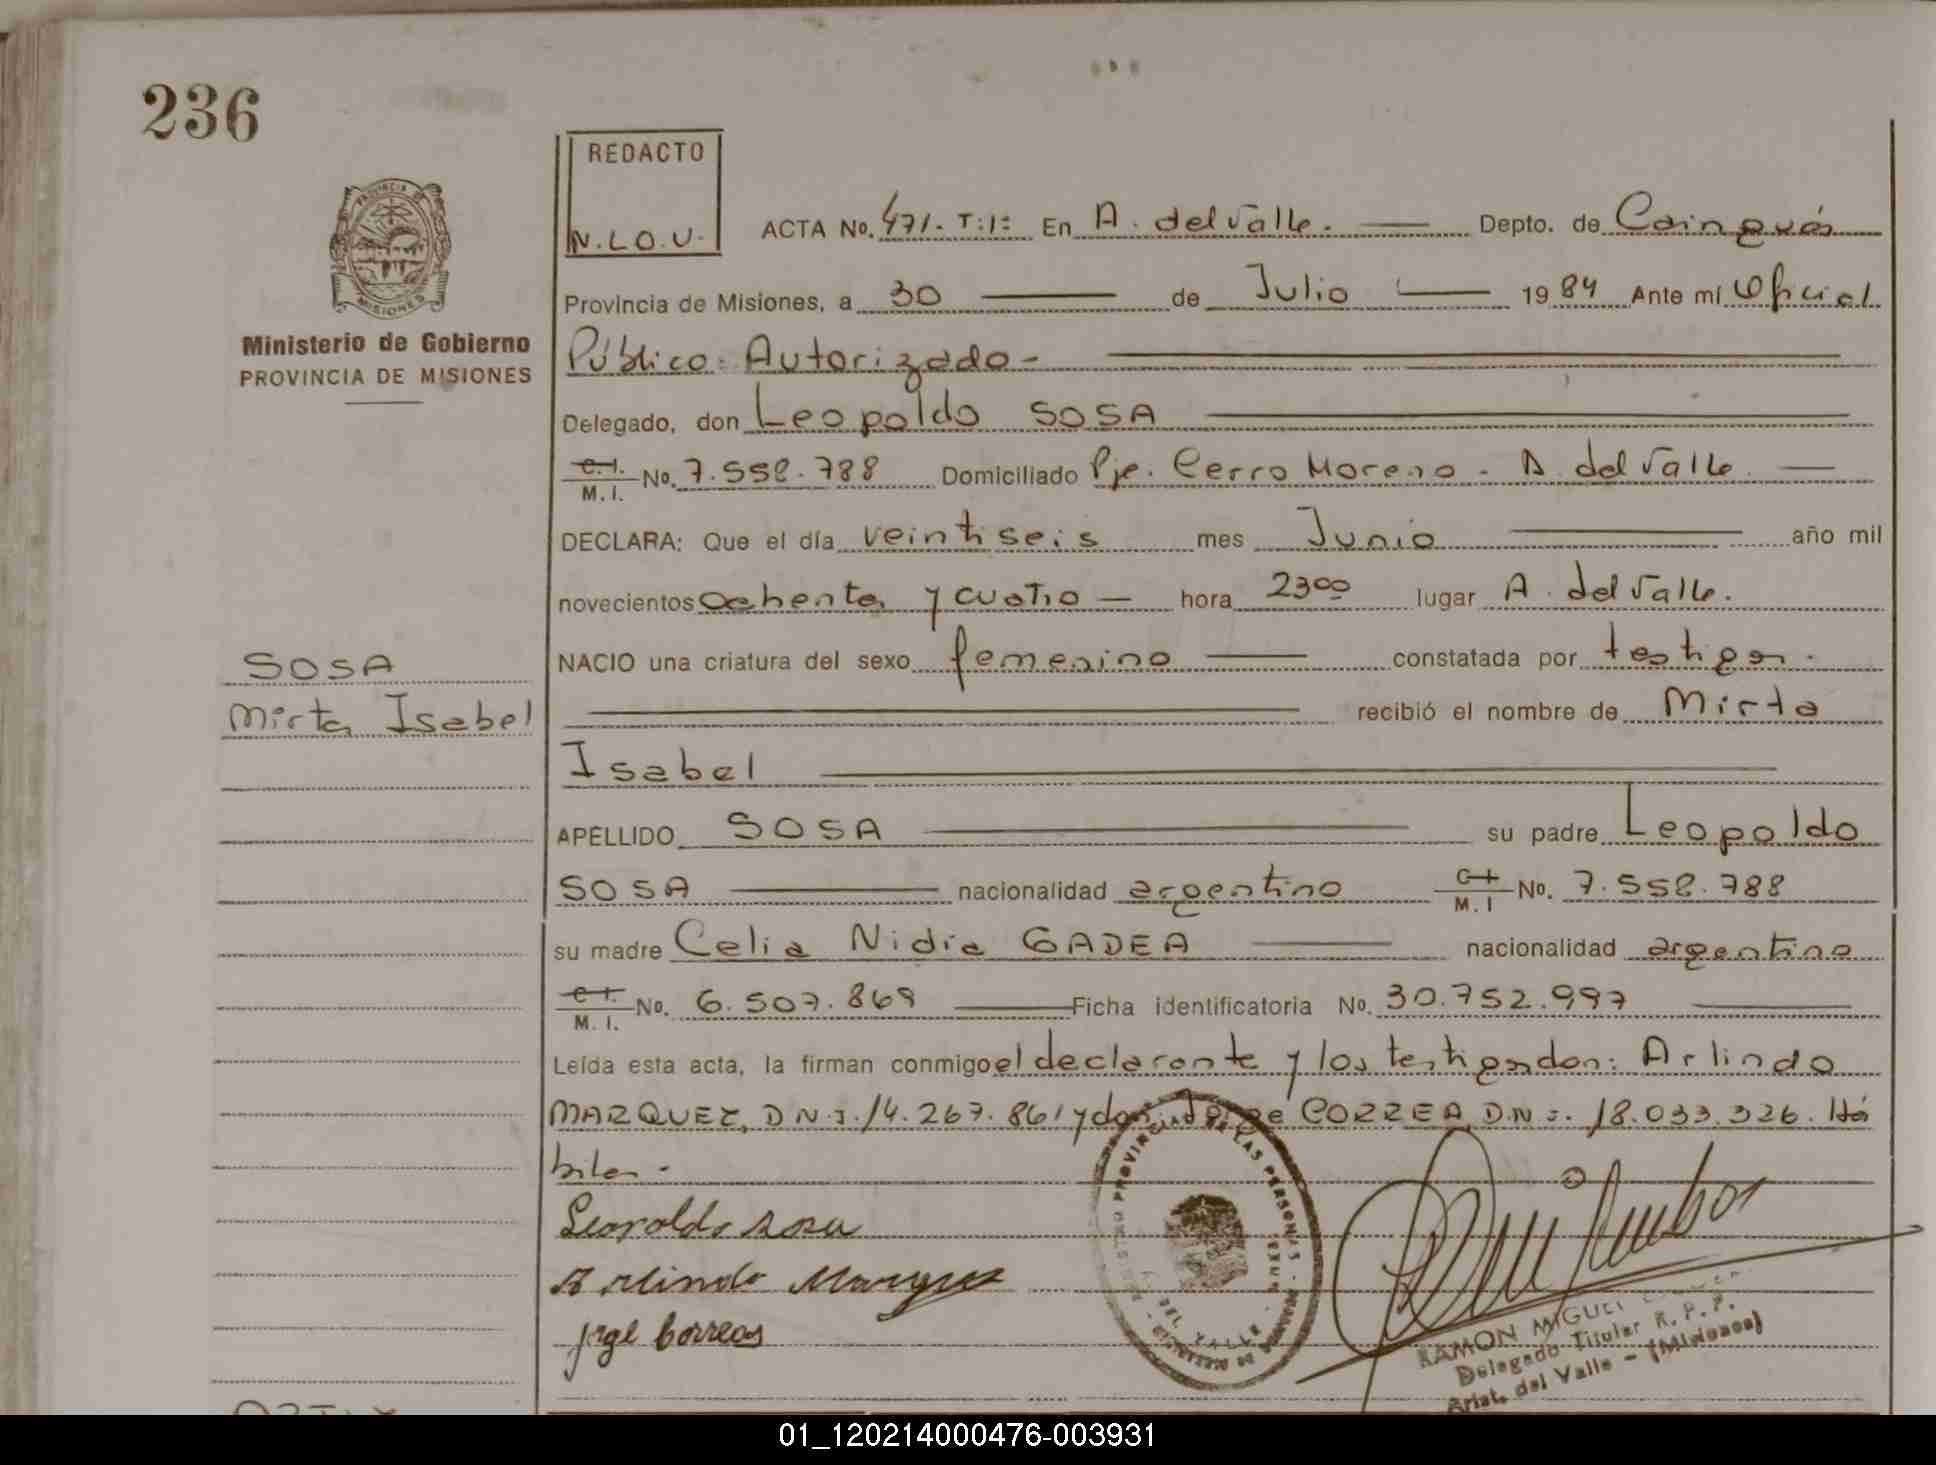 236
REDACTO
N.L.O.U.
PROVINCIA DE
MISIONES
Ministerio de Gobierno
PROVINCIA DE MISIONES
ACTA No. 471. T:1: En A. del Valle. Depto. de Cainguás
Provincia de Misiones, a 30 de Julio 1984 Ante mí Oficial
Público Autorizado -
Delegado, don Leopoldo SOSA
C.I. M.I. No. 7.558.788 Domiciliado Pje. Cerro Moreno - A. del Valle.
DECLARA: Que el día veintiseis mes Junio año mil
novecientos ochenta y cuatro - hora 23⁰⁰ lugar A. del Valle.
SOSA
Mirta Isabel
NACIO una criatura del sexo femenino constatada por testigos.
recibió el nombre de Mirta
Isabel
APELLIDO SOSA su padre Leopoldo
SOSA nacionalidad argentino C.I. M.I No. 7.558.788
su madre Celia Nidia GADEA nacionalidad argentina
C.I. M.I. No. 6.507.869 Ficha identificatoria No. 30.752.997
Leída esta acta, la firman conmigo el declarante y los testigos don: Arlindo
MARQUEZ, D.N.I. 14.267.861 y don Jorge CORREA D.N.I. 18.033.326. Há
biles -
Leopoldo Sosa
Arlindo Marquez
Jorge Correas
REGISTRO PROVINCIAL DE LAS PERSONAS
DEL VALLE
RAMON MIGUEL
Delegado Titular R. P. P.
Arist. del Valle - (Misiones)
01_120214000476-003931